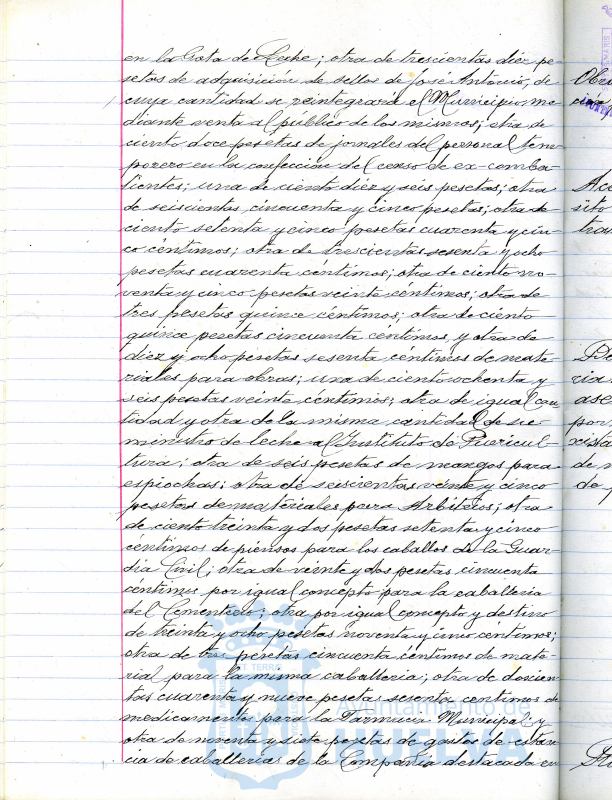 en la Gota de Leche; otra de trescientas diez pe-
setas de adquisición de sellos de José Antonio, de
cuya cantidad se reintegrará el Municipio me-
diante venta al público de los mismos; otra de
ciento doce pesetas de jornales del personal tem-
porero en la confección del censo de ex-comba-
tientes; una de ciento diez y seis pesetas; otra
de seiscientas cincuenta y cinco pesetas; otra de
ciento setenta y cinco pesetas cuarenta y cin-
co céntimos; otra de trescientas sesenta y ocho
pesetas cuarenta céntimos; otra de ciento no-
venta y cinco pesetas veinte céntimos; otra de
tres pesetas quince céntimos; otra de ciento
quince pesetas cincuenta céntimos, y otra de
diez y ocho pesetas sesenta céntimos de mate-
riales para obras; una de ciento ochenta y
seis pesetas veinte céntimos; otra de igual can-
tidad y otra de la misma cantidad de su-
ministro de leche al Instituto de Puericul-
tura; otra de seis pesetas de mangos para
espiochas; otra de seiscientas veinte y cinco
pesetas de materiales para Arbitrios; otra
de ciento treinta y dos pesetas setenta y cinco
céntimos de piensos para los caballos de la Guar-
dia Civil; otra de veinte y dos pesetas cincuenta
céntimos por igual concepto para la caballeria
del Cementerio; otra por igual concepto y destino
de treinta y ocho pesetas noventa y cinco céntimos;
otra de tres pesetas cincuenta céntimos de mate-
rial para la misma caballeria; otra de doscien-
tas cuarenta y nueve pesetas sesenta centimos de
medicamentos para la Farmacia Municipal y
otra de noventa y siete pesetas de gastos de estan-
cia de caballerias de la Compañia destacada en
Ayuntamiento de
HUELVA